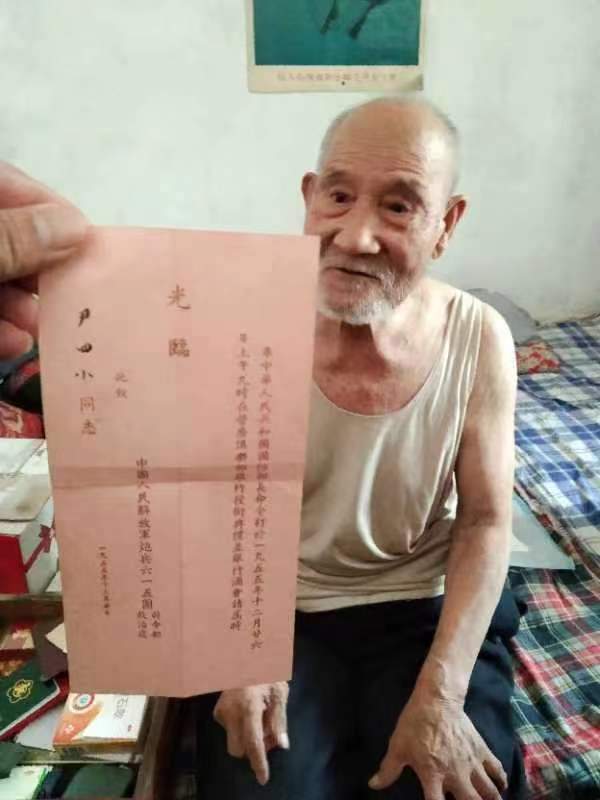 奉中華人民共和國國防部長命令訂於一九五五年十二月廿六
日上午九時在營房俱樂部舉行授銜典禮並舉行酒會請屆時
光臨
此致
尹田小同志
中國人民解放軍炮兵六一五團
司令部
政治處
一九五五年十二月